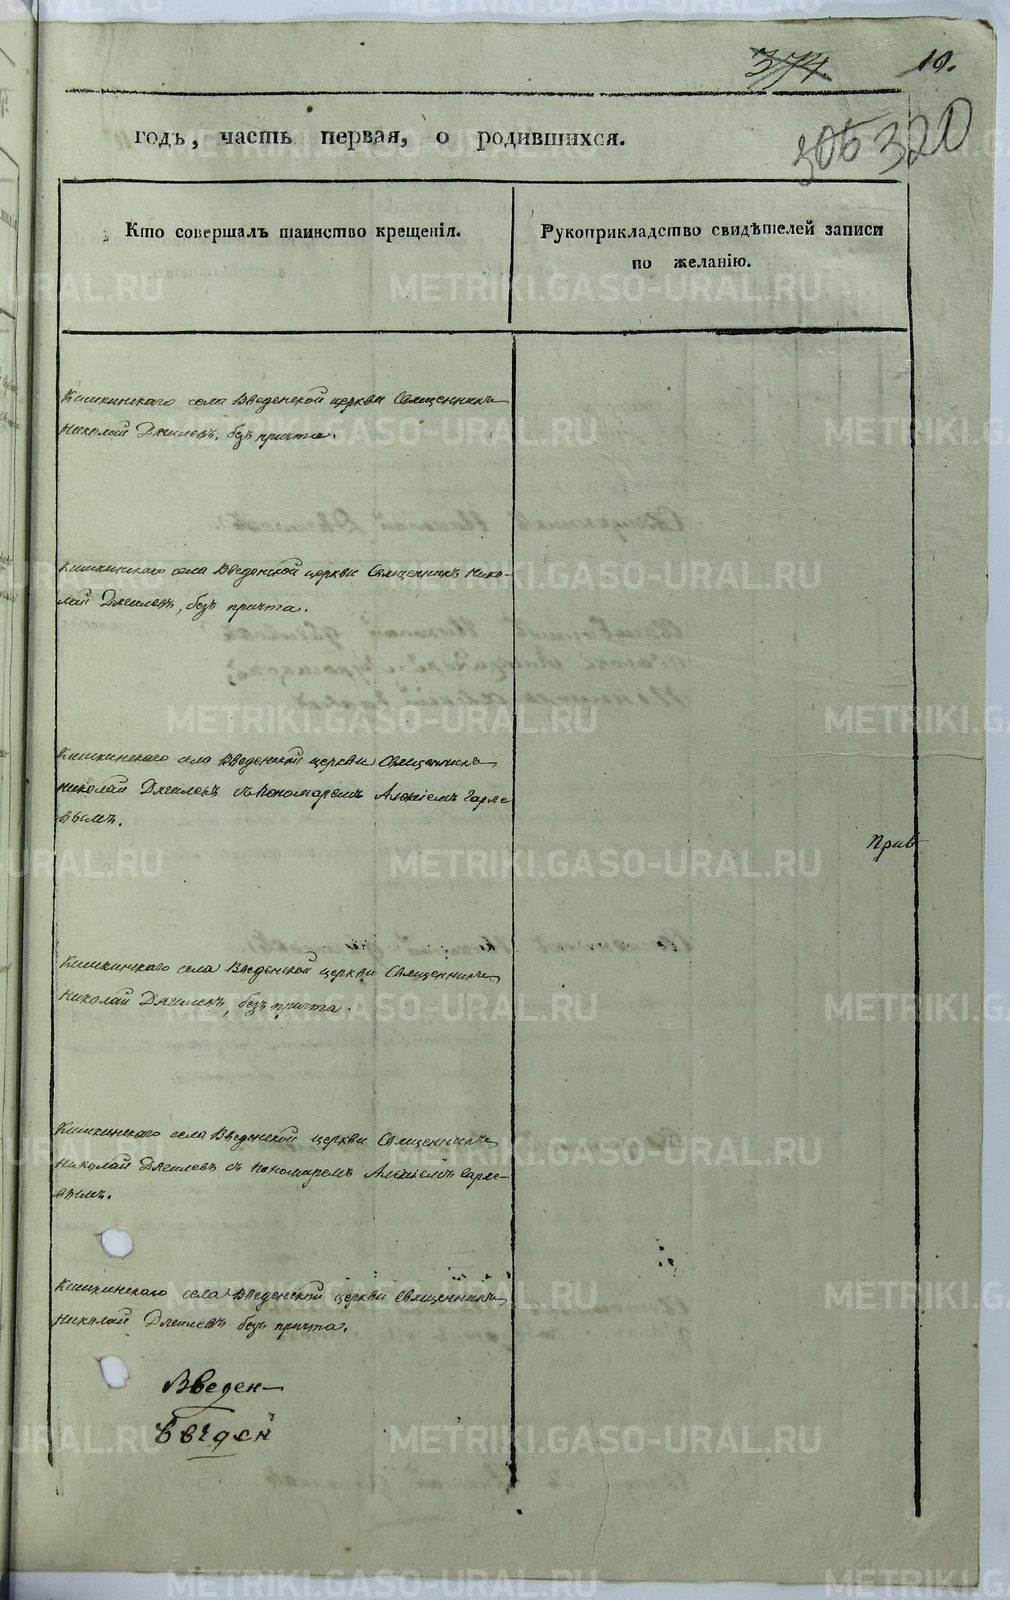 374 10.
305 320
годъ, часть первая, о родившихся.
Кто совершалъ таинство крещенія.
Рукоприкладство свидѣтелей записи
по желанію.
Кишкинскаго села Введенской церкви Священникъ
Николай Дягилевъ, безъ причта.
Кишкинскаго села Введенской церкви Священникъ Нико-
лай Дягилевъ, безъ причта.
Кишкинскаго села Введенской церкви Священникъ
Николай Дягилевъ съ Пономаремъ Алексіемъ
вымъ.
Прив
Кишкинскаго села Введенской церкви Священникъ
Николай Дягилевъ, безъ причта.
Кишкинскаго села Введенской церкви Священникъ
Николай Дягилевъ съ Пономаремъ Алексіемъ
вымъ.
Кишкинскаго села Введенской церкви Священникъ
Николай Дягилевъ безъ причта.
Введен
Введен
METRIKI.GASO-URAL.RU